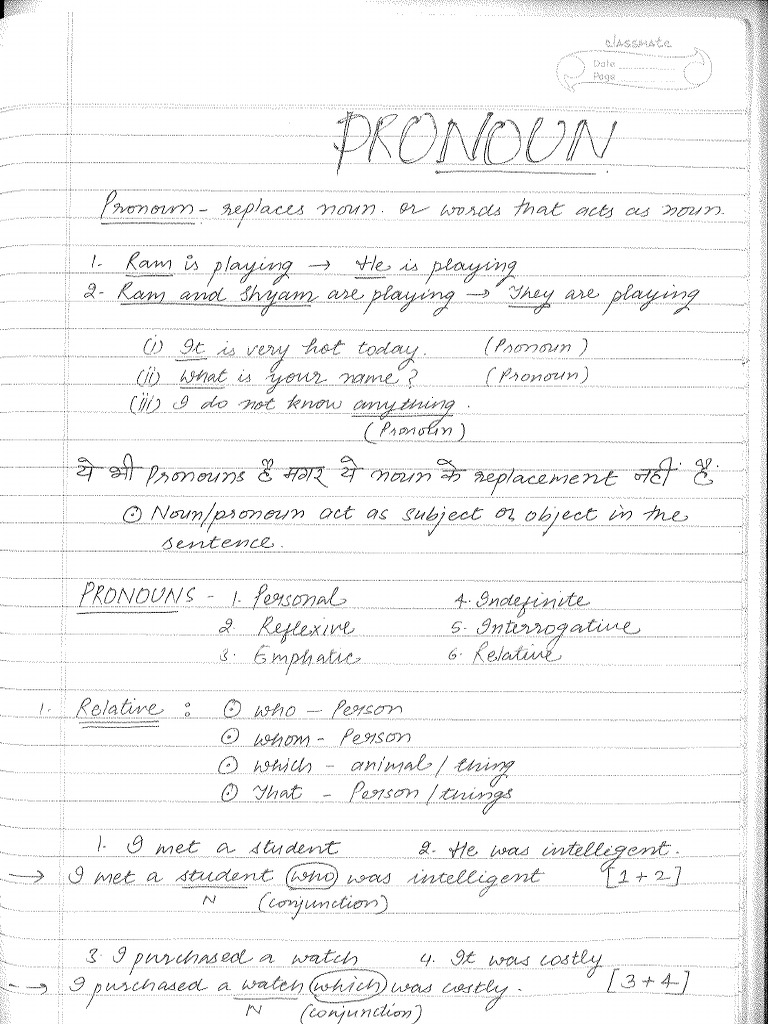 classmate
Date
Page
PRONOUN
Pronoun - replaces noun. or words that acts as noun.
1. Ram is playing → He is playing
2- Ram and Shyam are playing → They are playing
(i) It is very hot today. (Pronoun)
(ii) What is your name? (Pronoun)
(iii) I do not know anything.
(Pronoun)
ये भी Pronouns हैं मगर ये noun के replacement नहीं हैं.
⊙ Noun/pronoun act as subject or object in the
sentence.
PRONOUNS - 1. Personal 4. Indefinite
2. Reflexive 5. Interrogative
3. Emphatic 6. Relative
1. Relative : ⊙ who - Person
⊙ whom - Person
⊙ which - animal / thing
⊙ That - Person / things
1. I met a student 2. He was intelligent.
→ I met a student who was intelligent [1+2]
N (conjunction)
3. I purchased a watch 4. It was costly
→ I purchased a watch which was costly. [3+4]
N (conjunction)